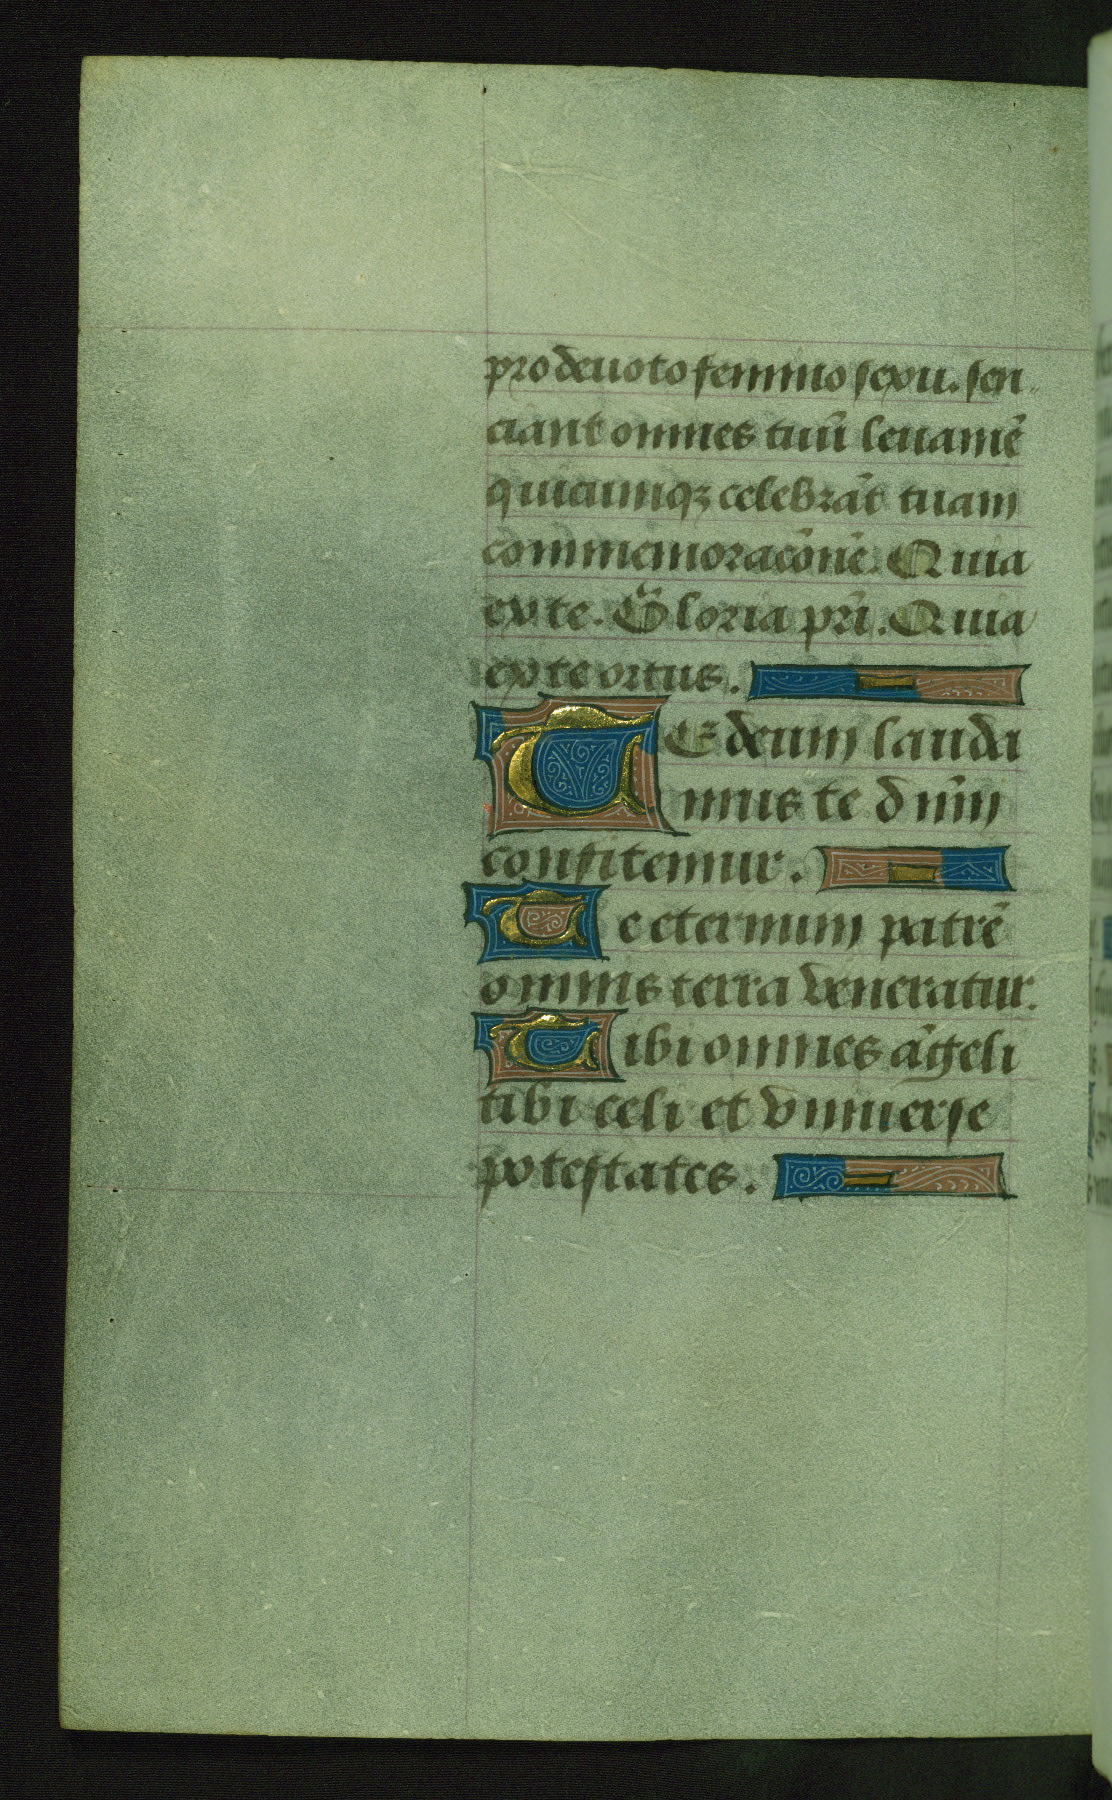 pro deuoto femineo sexu. sen-
ciant omnes tuū leuamē
quicumqꝫ celebrāt tuam
commemoracōnē. Quia
ex te. Gloria pr̄i. Quia
ex te ortus.
TE deum lauda
mus te dn̄m
confitemur.
Te eternum patrē
omnis terra veneratur.
Tibi omnes āgeli
tibi celi et vniuerse
potestates.